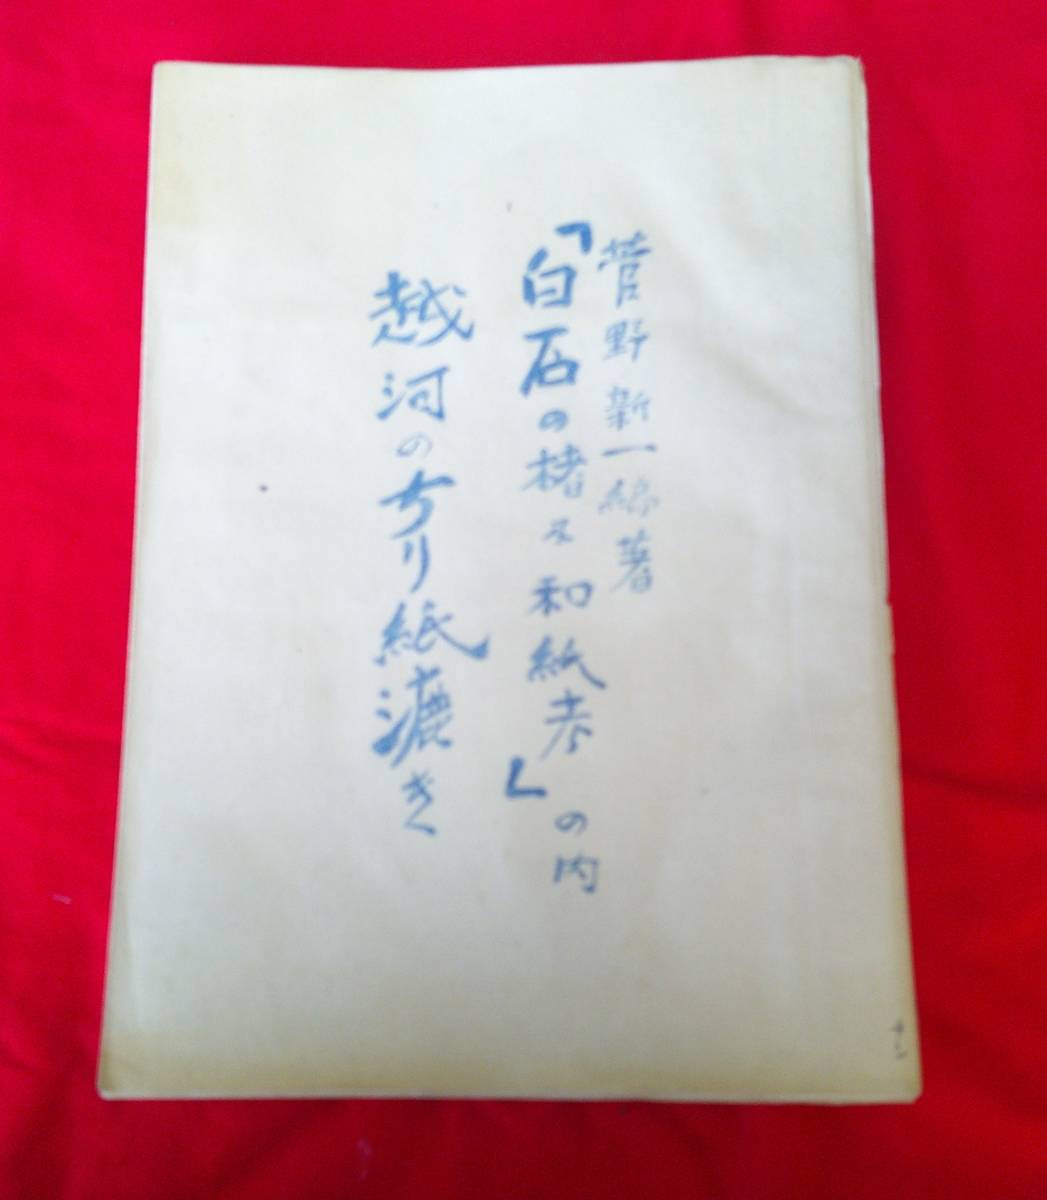 菅野新一編著
「白石の楮ト和紙考」の内
越河のチリ紙漉き